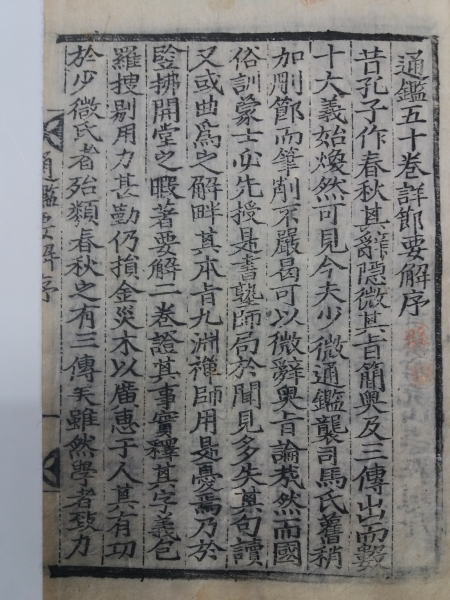 通鑑五十卷詳節要解序
昔孔子作春秋其辭隱微其旨簡奧及三傳出而數
十大義始煥然可見今夫少微通鑑襲司馬氏舊稍
加刪節而筆削不嚴曷可以微辭奧旨論㦲然而國
俗訓蒙士必先授是書塾師局於聞見多失其句讀
又或曲爲之解畔其本旨九淵禪師用是憂焉乃於
竪拂開堂之暇著要解二卷證其事實釋其字義包
羅搜剔用力甚勤仍損金災木以廣惠于人其有功
於少微氏者殆類春秋之有三傳矣雖然學者致力
通鑑要解序
一